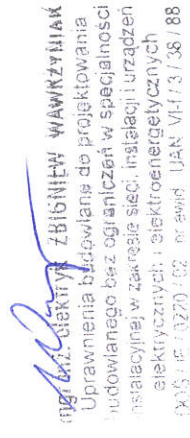 mgr inż. elektryk ZBIGNIEW WAWRZYNIAK
Uprawnienia budowlane do projektowania
budowlanego bez ograniczeń w specjalności
instalacyjnej w zakresie sieci, instalacji i urządzeń
elektrycznych i elektroenergetycznych
nr ewid. UAN VI-f/3/38/88